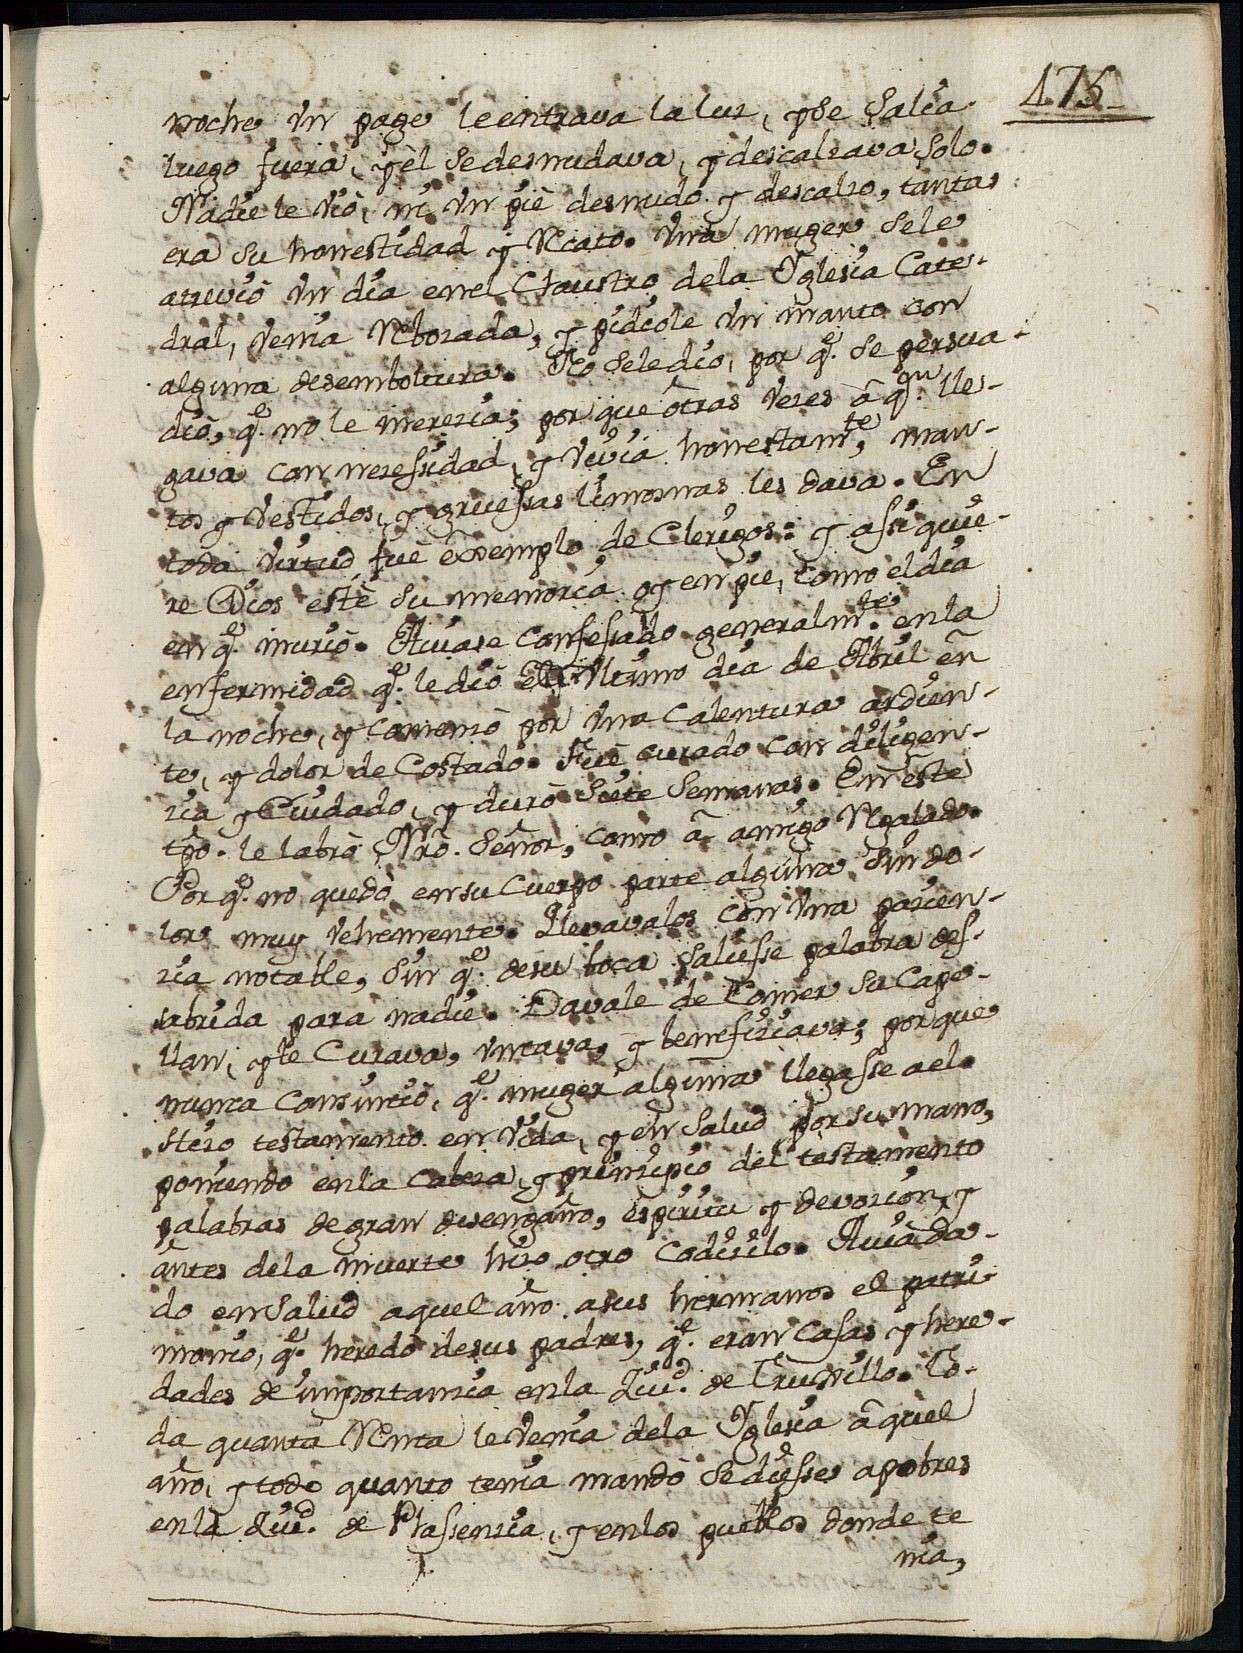 175
noche vn page le entrava la luz, y se salia
luego fuera, y èl se desnudava, y descalzava solo.
Nadie le viò, ni vn piè desnudo y descalzo, tanta
era su honestidad y Recato. Vna muger se le
atreviò vn dia en el Claustro de la Yglesia Cate-
dral, venia Rebozada, y pidiole vn manto con
alguna desemboltura. No se le diò, por q.e se persua-
diò, q.e no le merezia; por que ôtras vezes â q.n lle-
gava con nezessidad, y vivia honestam.te, man-
tos y vestidos, y gruessas limosnas les dava. En
toda virtud fuè exemplo de Clerigos: y assi quie-
re Dios estè su memoria oy en pie, como el dia
en q.e muriò. Aviase confessado generalm.te en la
enfermidad q.e le diò el vltimo dia de Abril en
la noche, y comenzò por vna calentura ardien-
te, y dolor de Costado. Fuè curado con diligen-
zia y Cuidado, y durò siete semanas. En este
tpo. le labrò Nro. Señor, como â amigo Regalado.
Por q.e no quedò en su Cuerpo parte alguna sin do-
lor muy vehemente. Llevavalos con vna pacien-
zia notable, sin q.e de su boca saliesse palabra des-
abrida para nadie. Davale de Comer su Cape-
llan, y le Curava, vntava, y benefiziava; porque
nunca consintiò, q.e muger alguna llegasse a el.
Hizo testamento en vida, y en salud por su mano,
poniendo en la Cabeza, y prinzipio del testamento
palabras de gran desengaño, espiritu y devozion, y
ântes de la muerte hizo otro Codizilo. Avia da-
do en salud aquel año a sus hermanos el patri-
monio, q.e heredò de sus padres, q.e eran Casas y here-
dades de importanzia en la Ziu.d de Truxillo. To-
da quanta Renta le venia de la Yglesia âquel
año, y todo quanto tenia mandò se diesse a pobres
en la Ziu.d de Plasenzia, y en los pueblos donde te
nia,